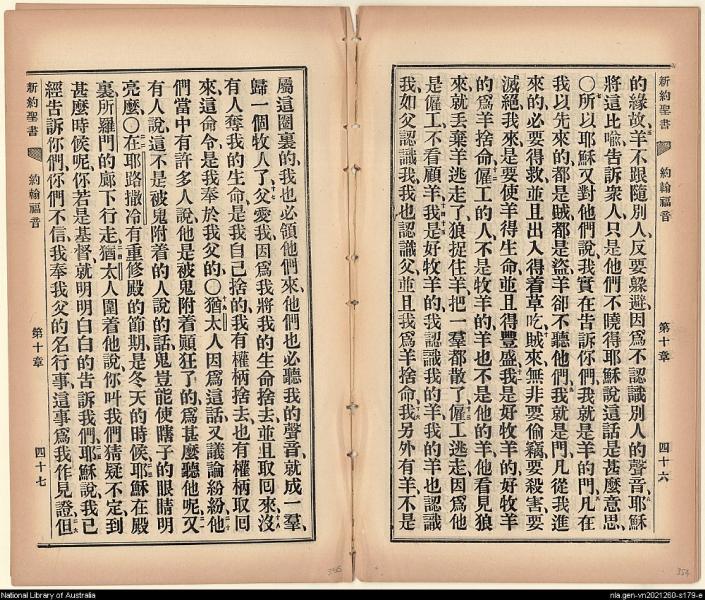 新約聖書 約翰福音 第十章 四十六
的緣故、羊不跟隨別人、反要躱避、因爲不認識別人的聲音、耶穌
將這比喻、告訴衆人、只是他們不曉得耶穌說這話是甚麼意思、
〇所以耶穌又對他們說、我實在告訴你們、我就是羊的門、凡在
我以先來的、都是賊、都是盜、羊卻不聽他們、我就是門、凡從我進
來的、必要得救、並且出入得着草吃、賊來無非要偷竊、要殺害、要
滅絕、我來是要使羊得生命、並且得豐盛、我是好牧羊的、好牧羊
的爲羊捨命、僱工的人、不是牧羊的、羊也不是他的羊、他看見狼
來、就丟棄羊逃走了、狼捉住羊、把一羣都散了、僱工逃走、因爲他
是僱工、不顧羊、我是好牧羊的、我認識我的羊、我的羊也認識
我、如父認識我、我也認識父、並且我爲羊捨命、我另外有羊、不是
屬這圈裏的、我也必領他們來、他們也必聽我的聲音、就成一羣、
歸一個牧人了、父愛我、因爲我將我的生命捨去、並且取回來、沒
有人奪我的生命、是我自己捨的、我有權柄捨去、也有權柄取回
來、這命令、是我奉於我父的、〇猶太人因爲這話、又議論紛紛、他
們當中有許多人說、他是被鬼附着顚狂了的、爲甚麼聽他呢、又
有人說、這不是被鬼附着的人說的話、鬼豈能使瞎子的眼睛明
亮麼、〇在耶路撒冷有重修殿的節期、是冬天的時候、耶穌在殿
裏所羅門的廊下行走、猶太人圍着他說、你叫我們猜疑不定到
甚麼時候呢、你若是基督、就明明白白的告訴我們、耶穌說、我已
經告訴你們、你們不信、我奉我父的名行事、這事爲我作見證、但
新約聖書 約翰福音 第十章 四十七
National Library of Australia
nla.gen-vn2021260-s179-e